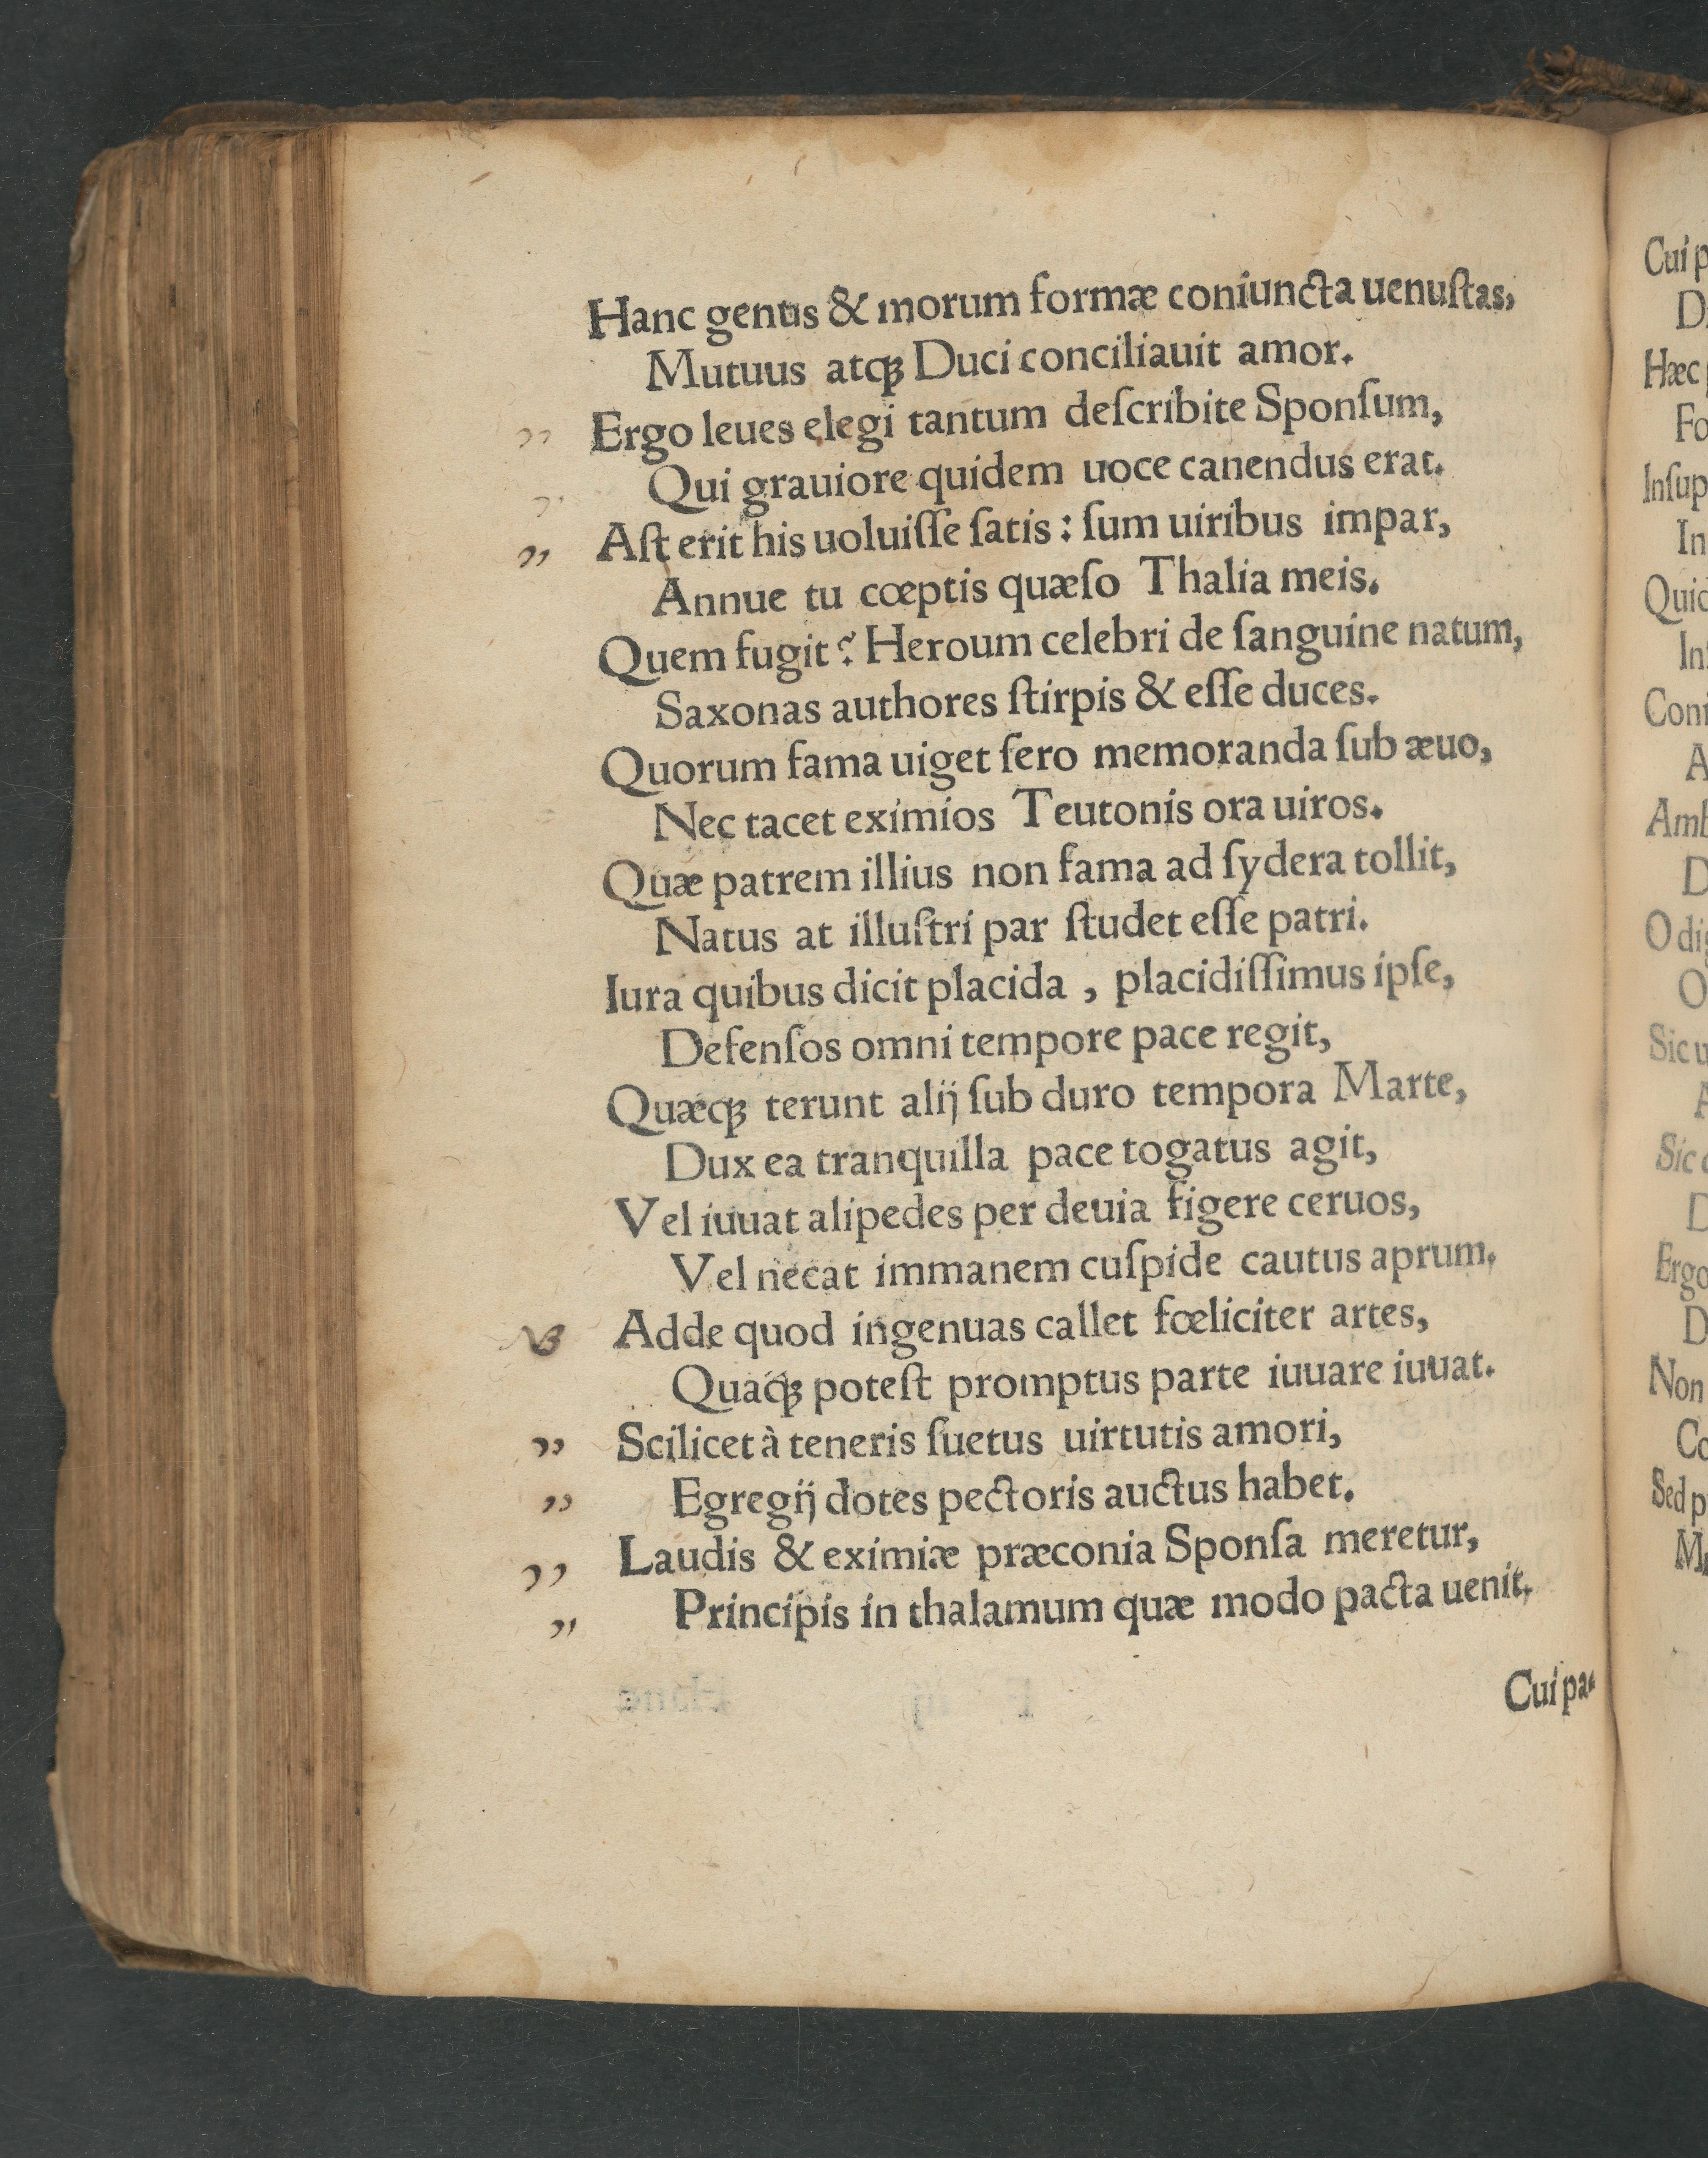 Hanc genus & morum formæ coniuncta uenuſtas,
Mutuus atqꝫ Duci conciliauit amor.
Ergo leues elegi tantum deſcribite Sponſum,
Qui grauiore quidem uoce canendus erat.
Aſt erit his uoluiſſe ſatis : ſum uiribus impar,
Annue tu cœptis quæſo Thalia meis.
Quem fugit? Heroum celebri de ſanguine natum,
Saxonas authores ſtirpis & eſſe duces.
Quorum fama uiget ſero memoranda ſub æuo,
Nec tacet eximios Teutonis ora uiros.
Quæ patrem illius non fama ad ſydera tollit,
Natus at illuſtri par ſtudet eſſe patri.
Iura quibus dicit placida , placidiſſimus ipſe,
Defenſos omni tempore pace regit,
Quæqꝫ terunt alij ſub duro tempora Marte,
Dux ea tranquilla pace togatus agit,
Vel iuuat alipedes per deuia figere ceruos,
Vel necat immanem cuſpide cautus aprum.
NB Adde quod ingenuas callet fœliciter artes,
Quaqꝫ poteſt promptus parte iuuare iuuat.
Scilicet à teneris ſuetus uirtutis amori,
Egregij dotes pectoris auctus habet.
Laudis & eximiæ præconia Sponſa meretur,
Principis in thalamum quæ modo pacta uenit.
Cui pa-
Cui p
D
Hæc
Fo
Inſup
In
Quic
In
Con
A
Amb
D
O dig
O
Sic u
A
Sic
D
Ergo
D
Non
Co
Sed p